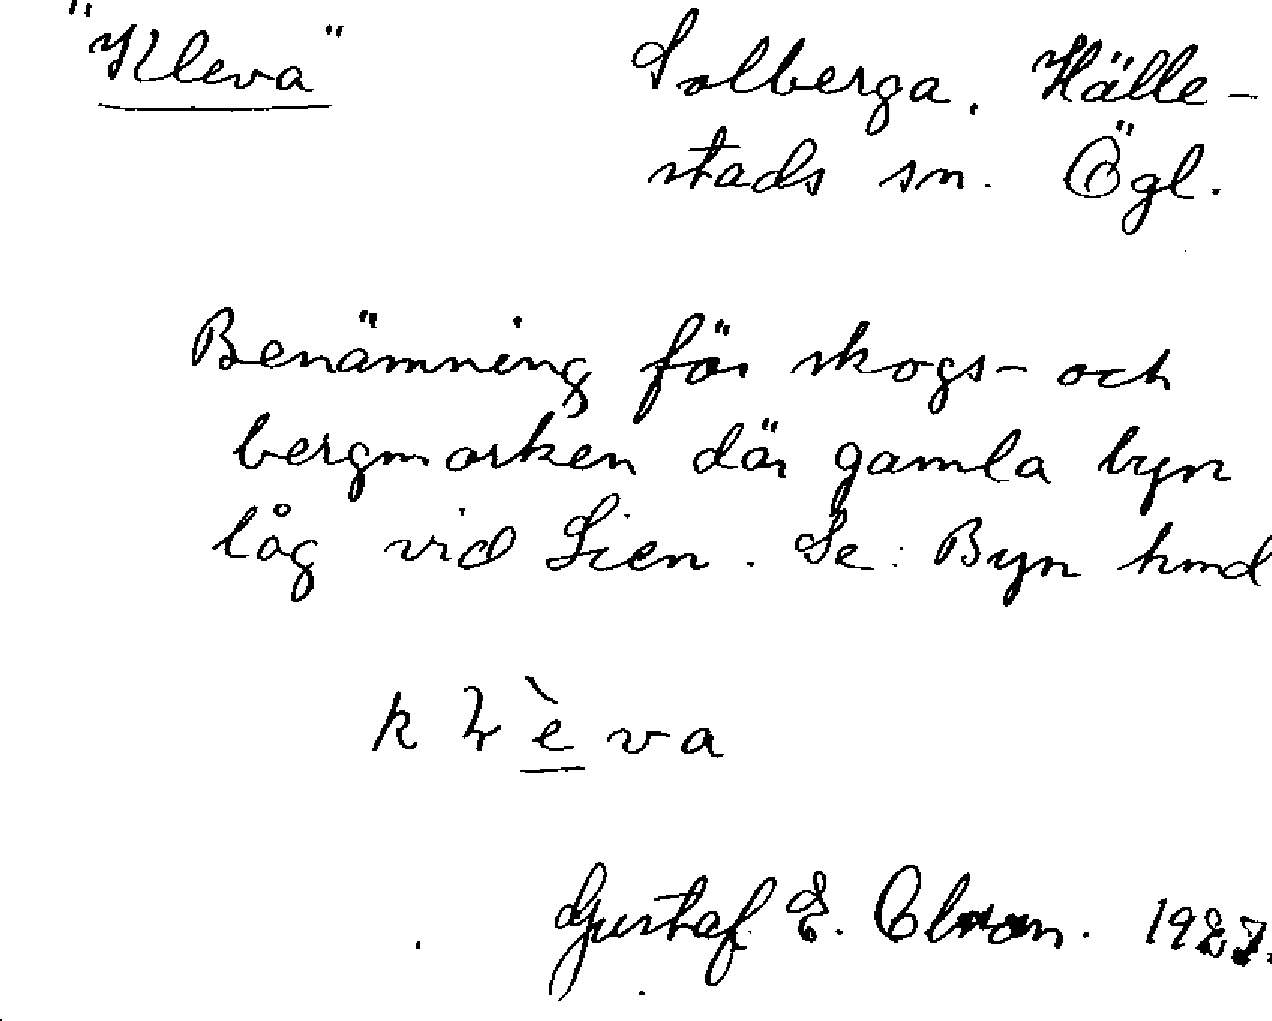 "Kleva" Solberga. Hälle-
stads sn. Ögl.
Benämning för skogs- och
bergmarken där gamla byn
låg vid Sien. Se: Byn hmd
Gustaf E. Olson. 1927.